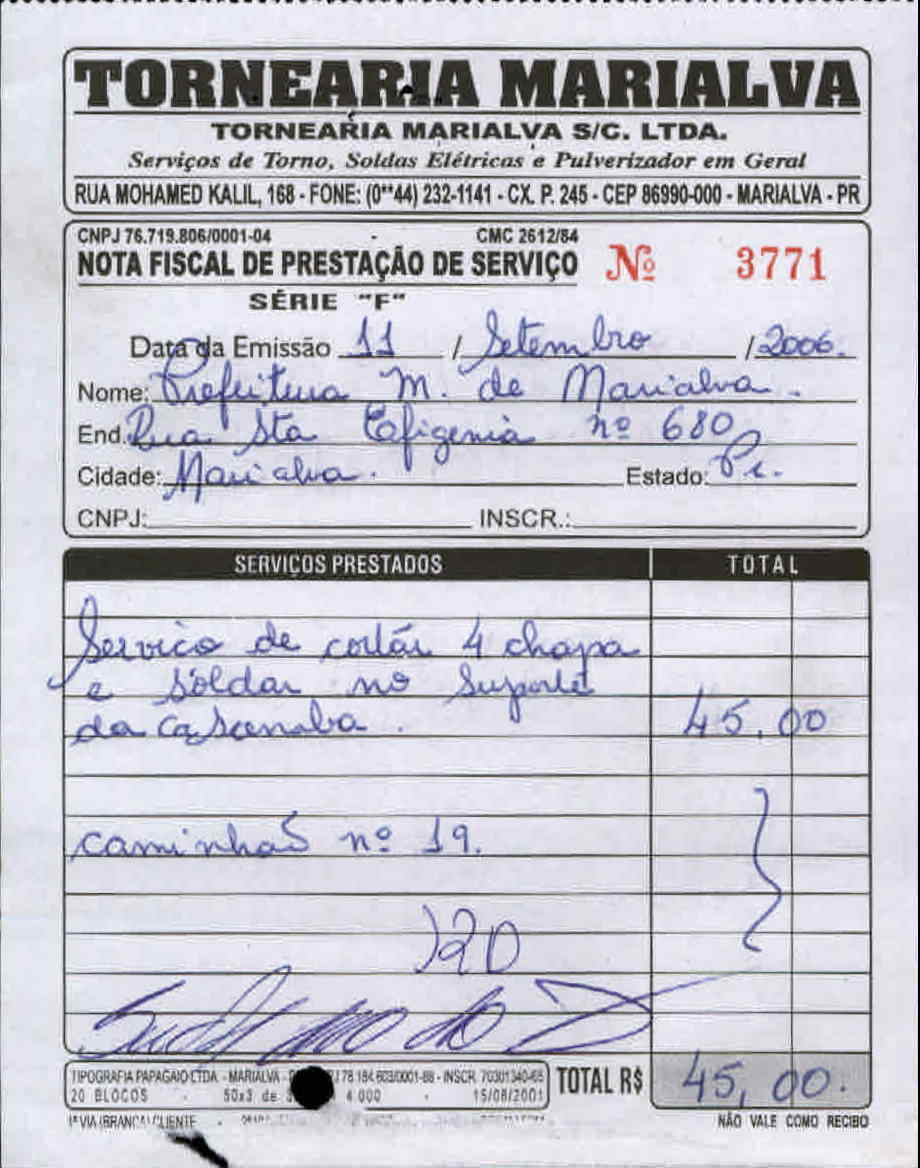 TORNEARIA MARIALVA
TORNEARIA MARIALVA S/C. LTDA.
Serviços de Torno, Soldas Elétricas e Pulverizador em Geral
RUA MOHAMED KALIL, 168 - FONE: (0**44) 232-1141 - CX. P. 245 - CEP 86990-000 - MARIALVA - PR
CNPJ 76.719.806/0001-04 CMC 2612/84
NOTA FISCAL DE PRESTAÇÃO DE SERVIÇO Nº 3771
SÉRIE "F"
Data da Emissão 11 / Setembro / 2006.
Nome: Prefeitura M. de Marialva.
End. Rua Sta Efigenia nº 680
Cidade: Marialva. Estado: Pr.
CNPJ: INSCR.:
SERVIÇOS PRESTADOS TOTAL
Servico de cortár 4 chapa
e soldar no Suporte
da Cascamba. 45,00
caminhaõ nº 19.
TIPOGRAFIA PAPAGAIO LTDA - MARIALVA - 78.184.603/0001-88 - INSCR. 70301340-65
20 BLOCOS 50x3 de 4.000 15/08/2001
TOTAL R$ 45,00.
1ª VIA (BRANCA) CLIENTE NÃO VALE COMO RECIBO